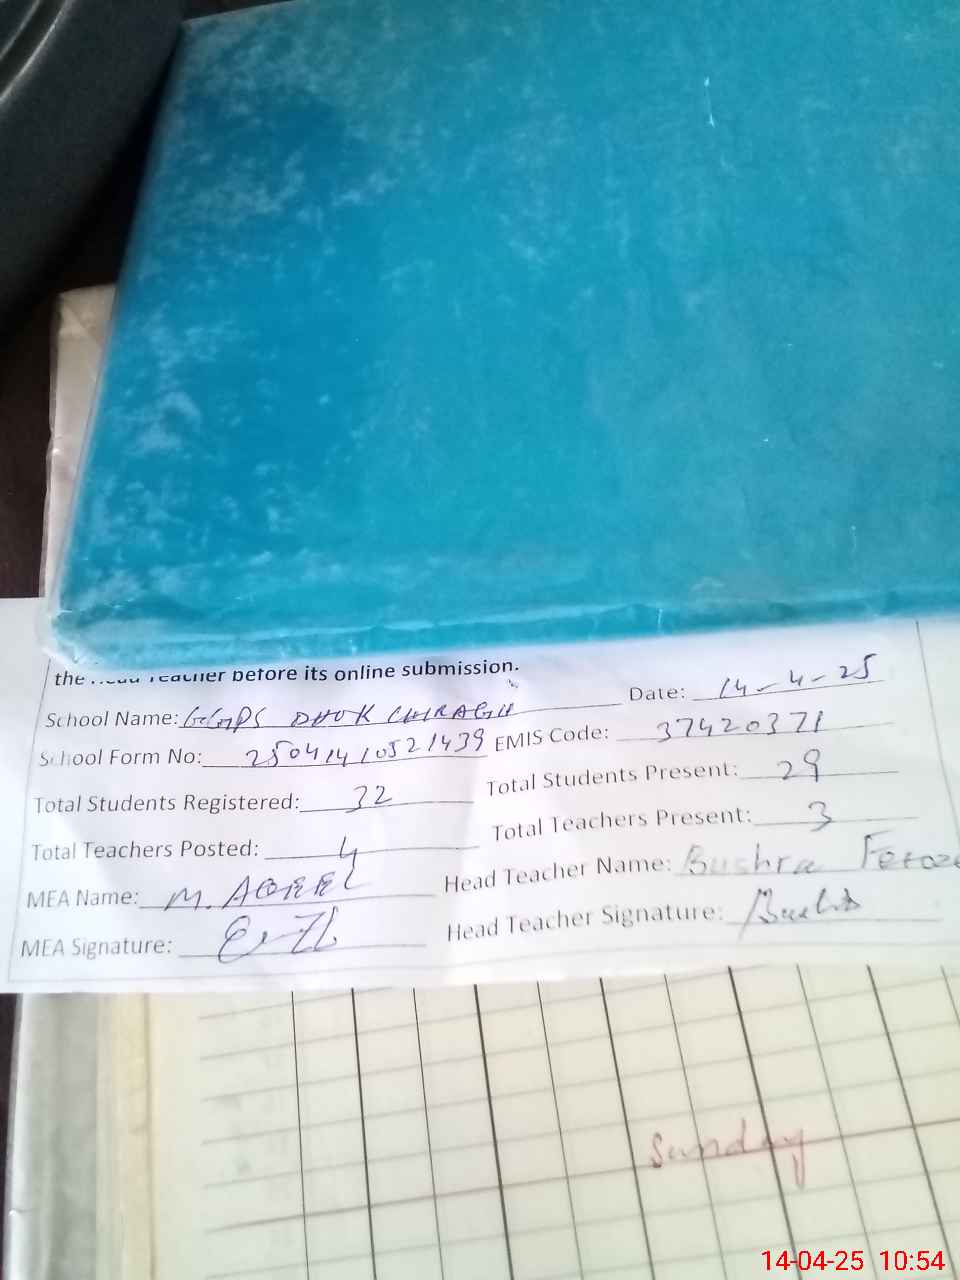 the Head Teacher before its online submission.
School Name: GGPS DHOK CHIRAGH Date: 14-4-25
School Form No: 25041410521439 EMIS Code: 37420371
Total Students Registered: 32 Total Students Present: 29
Total Teachers Posted: 4 Total Teachers Present: 3
MEA Name: M. Head Teacher Name: Bushra Feroze
MEA Signature: Head Teacher Signature: Bushra
Sunday
14-04-25 10:54